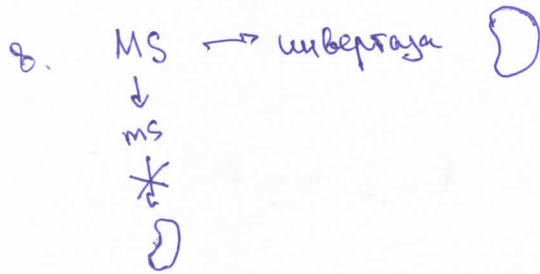 8. MS → инвертаза
↓
ms